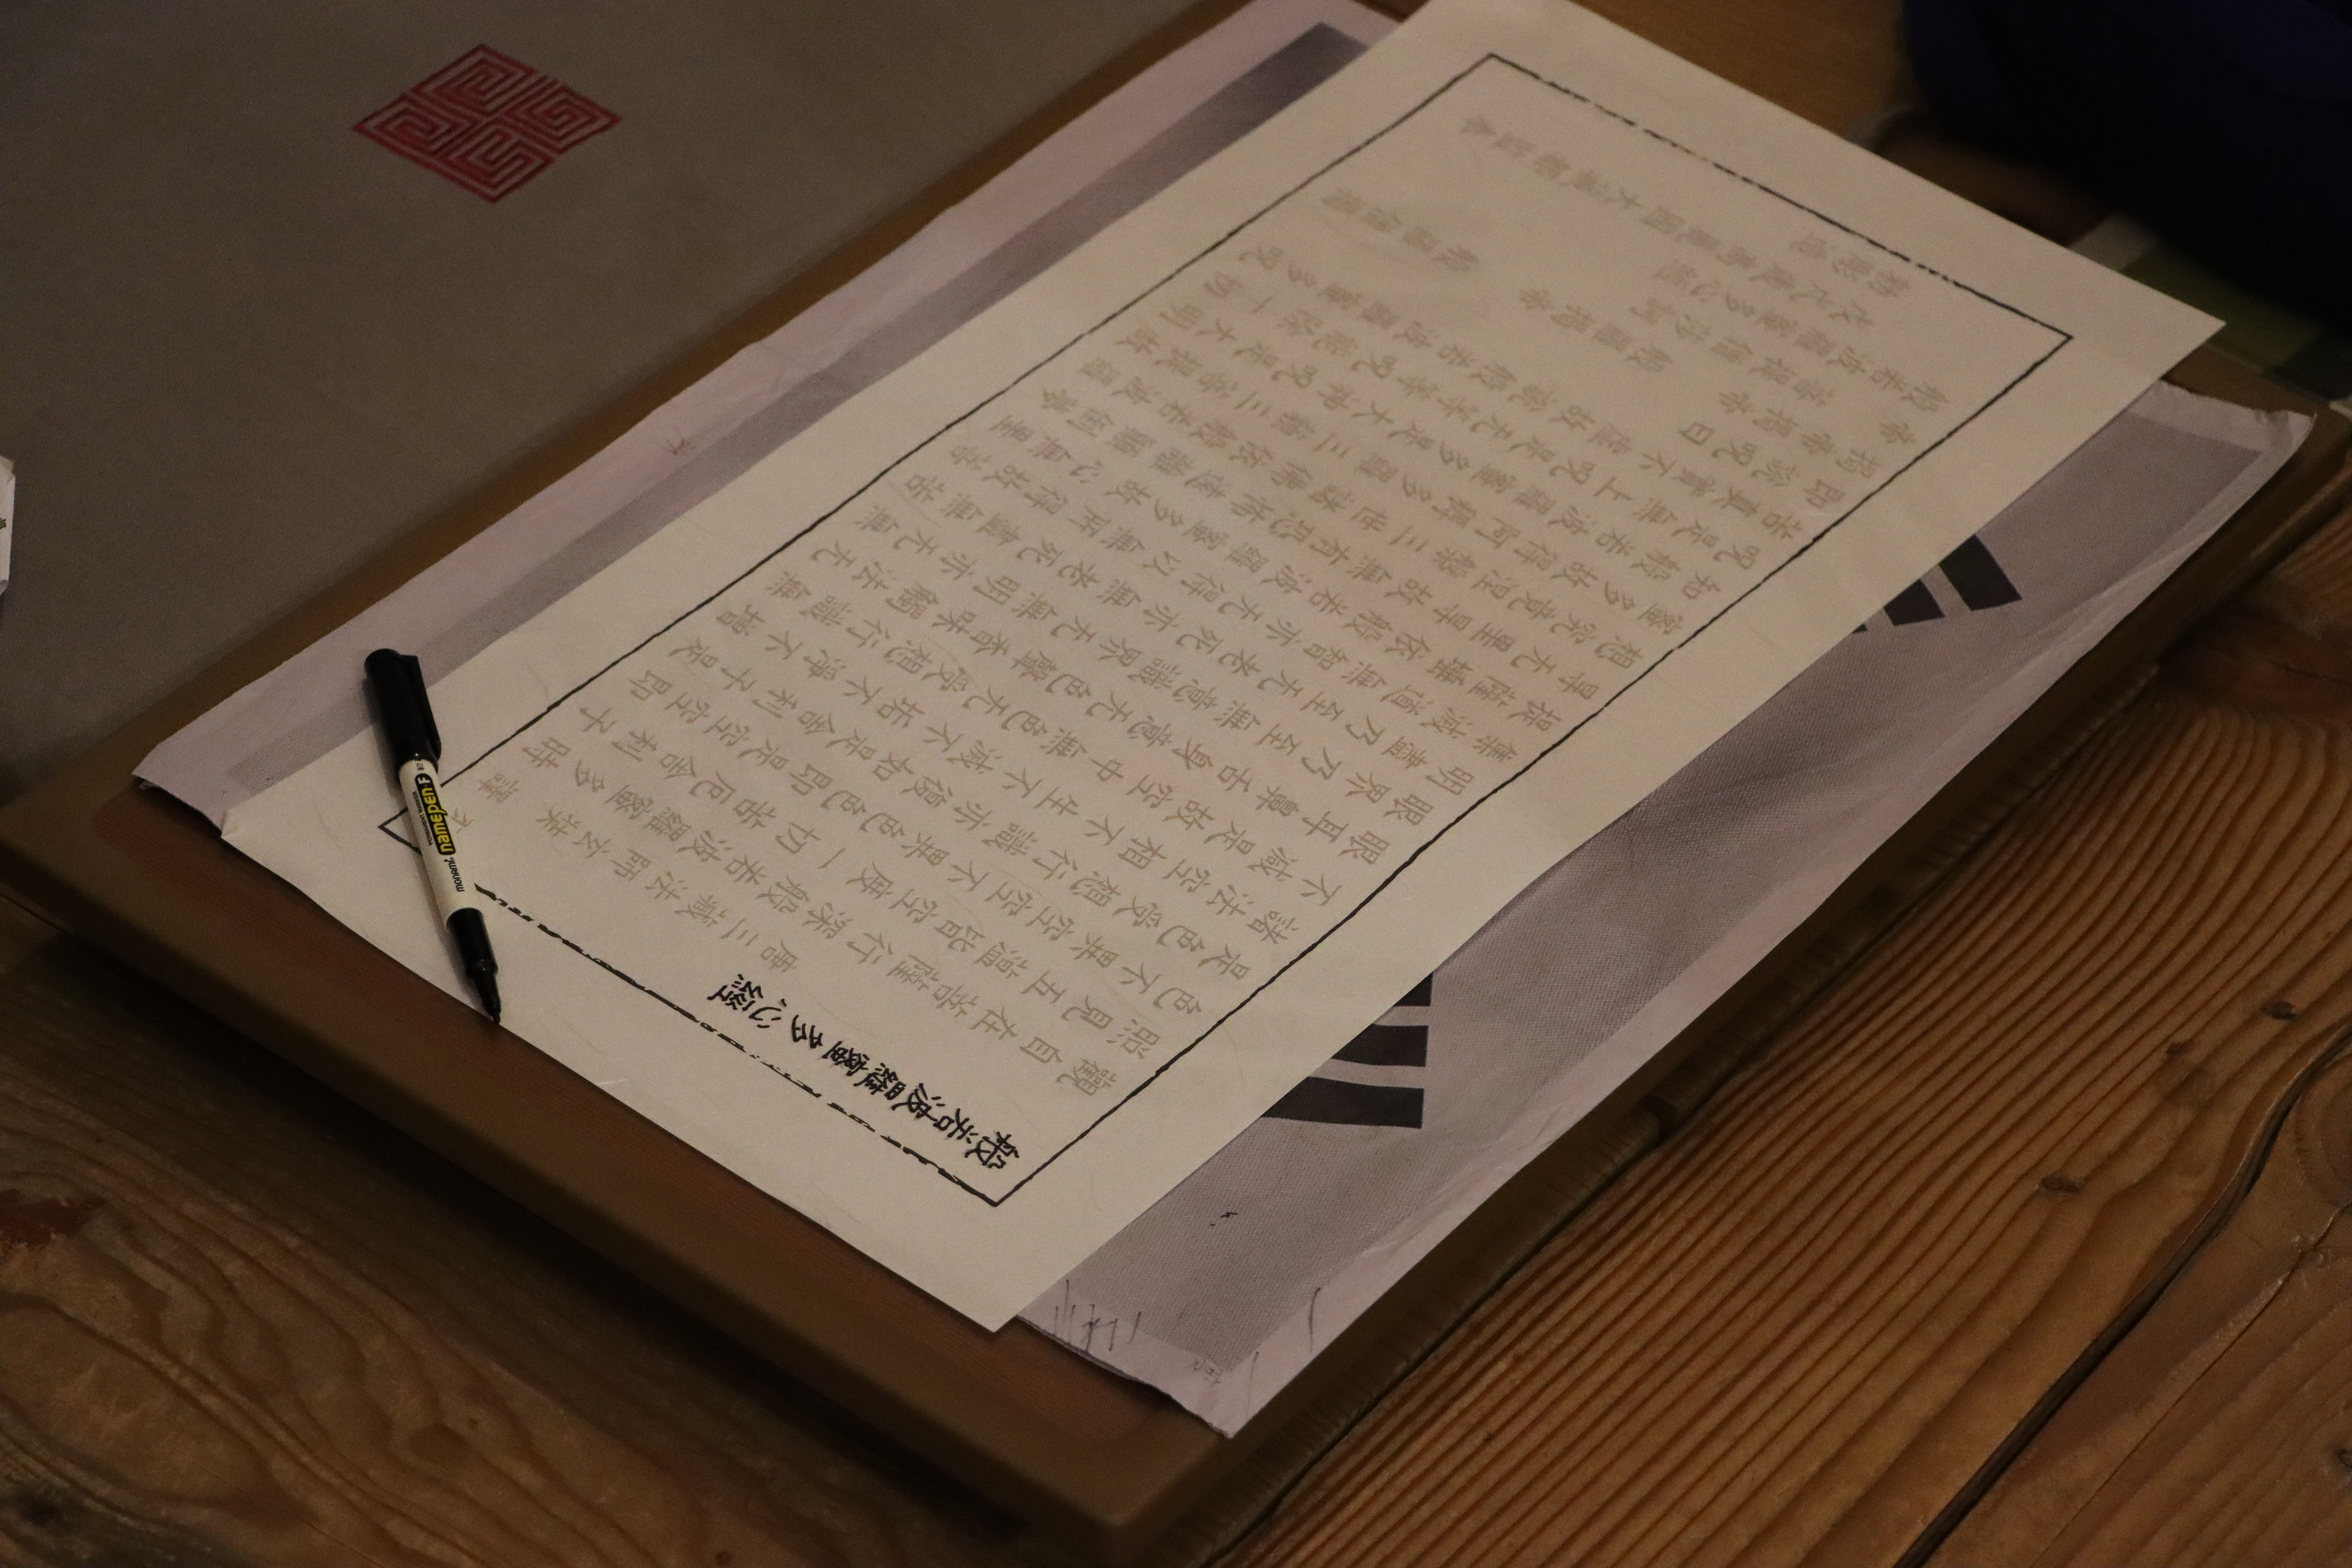 般若波羅蜜多心經
唐三藏法師玄奘 譯
觀自在菩薩行深般若波羅蜜多時
照見五蘊皆空度一切苦厄舍利子
色不異空空不異色色即是空空即
是色受想行識亦復如是舍利子是
諸法空相不生不滅不垢不淨不增
不減是故空中無色无受想行識無
眼耳鼻舌身意无色聲香味觸法无
眼界乃至無意識界无無明亦无無
明盡乃至无老死亦無老死盡無苦
集滅道無智亦无得以無所得故菩
提薩埵依般若波羅蜜多故心無罣
㝵无罣㝵故無有恐怖遠離顛倒夢
想究竟涅槃三世諸佛依般若波羅
蜜多故得阿耨多羅三藐三菩提故
知般若波羅蜜多是大神呪是大明
呪是無上呪是无等等呪能除一切
苦真實不虛故說般若波羅蜜多呪
即說呪曰
揭帝揭帝 般羅揭帝 般羅僧揭
帝菩提僧莎訶
般若波羅蜜多心經
戊戌歲高麗國大藏都監奉
勅彫造
monami namepen F